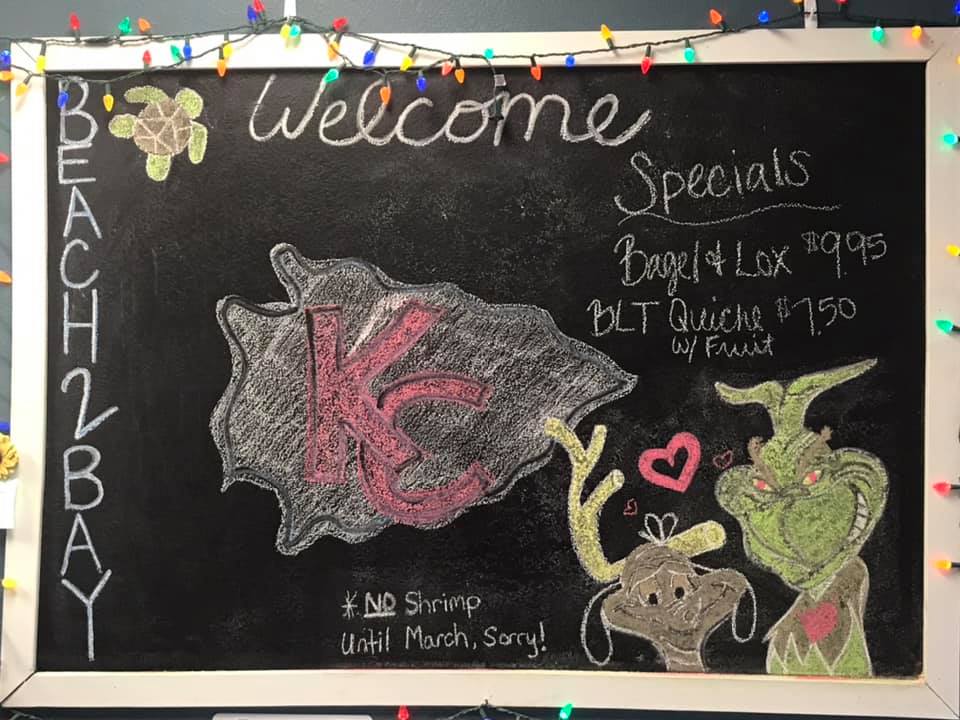 BEACH 2 BAY
Welcome
Specials
Bagel & Lox $9.95
BLT Quiche $7.50
w/ Fruit
KC
* NO Shrimp
Until March, Sorry!